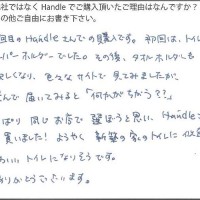 社ではなく Handle でご購入頂いたご理由はなんですか?
の他ご自由にお書き下さい。
回目の Handle さんでの購入です。初回は、トイ
パーホルダーでした。その後、タオルホルも
しくなり、色々なサイトで見てみましたが、
んで届いてみると「何かがちがう??」
ぱり 同じお店で 選ぼうと思い、Handleさ
買いました! ようやく 新築の家のトイレに
おいい トイレになりそうです。
りがとうございます。